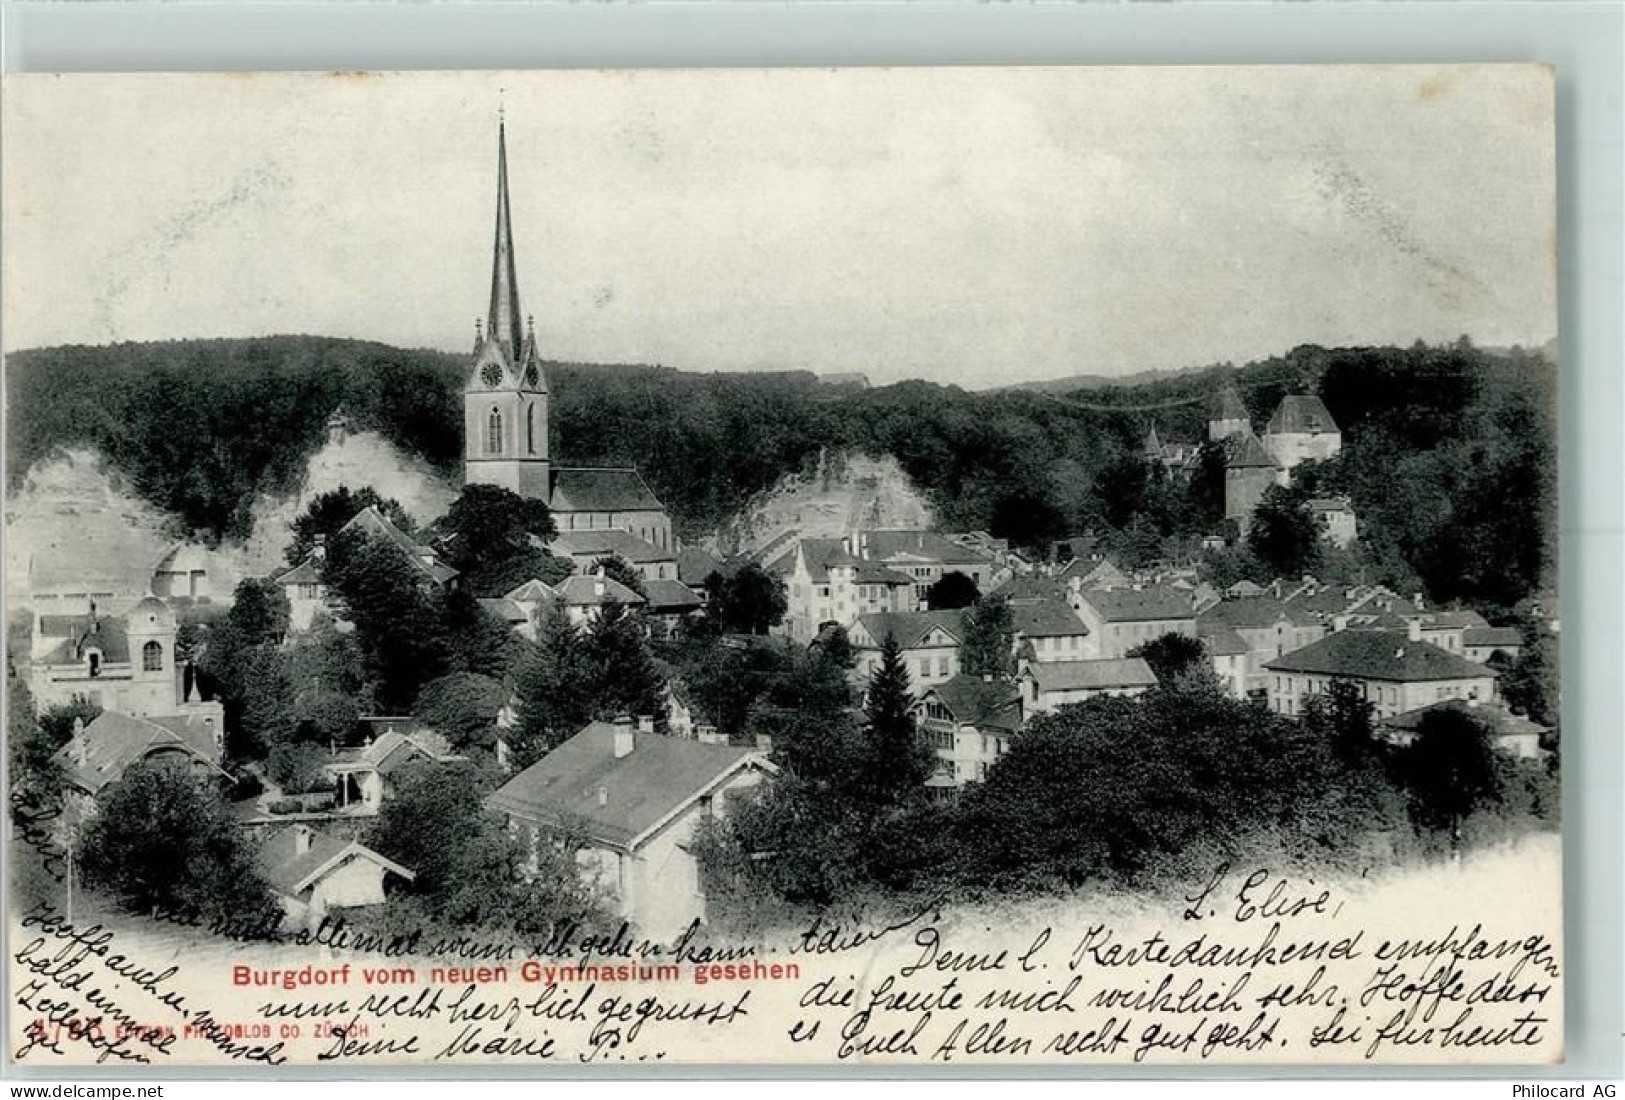 L. Elise,
Deine l. Karte dankend empfangen
die freute mich wirklich sehr. Hoffe dass
es Euch Allen recht gut geht. Sei für heute
nun recht herzlich gegrüsst
Deine Marie
Hoffe auch
bald einmal
zu
nicht allemal wenn ich gehen kann. Adieu
Burgdorf vom neuen Gymnasium gesehen
EDITION PHOTOGLOB CO. ZÜRICH
Philocard AG